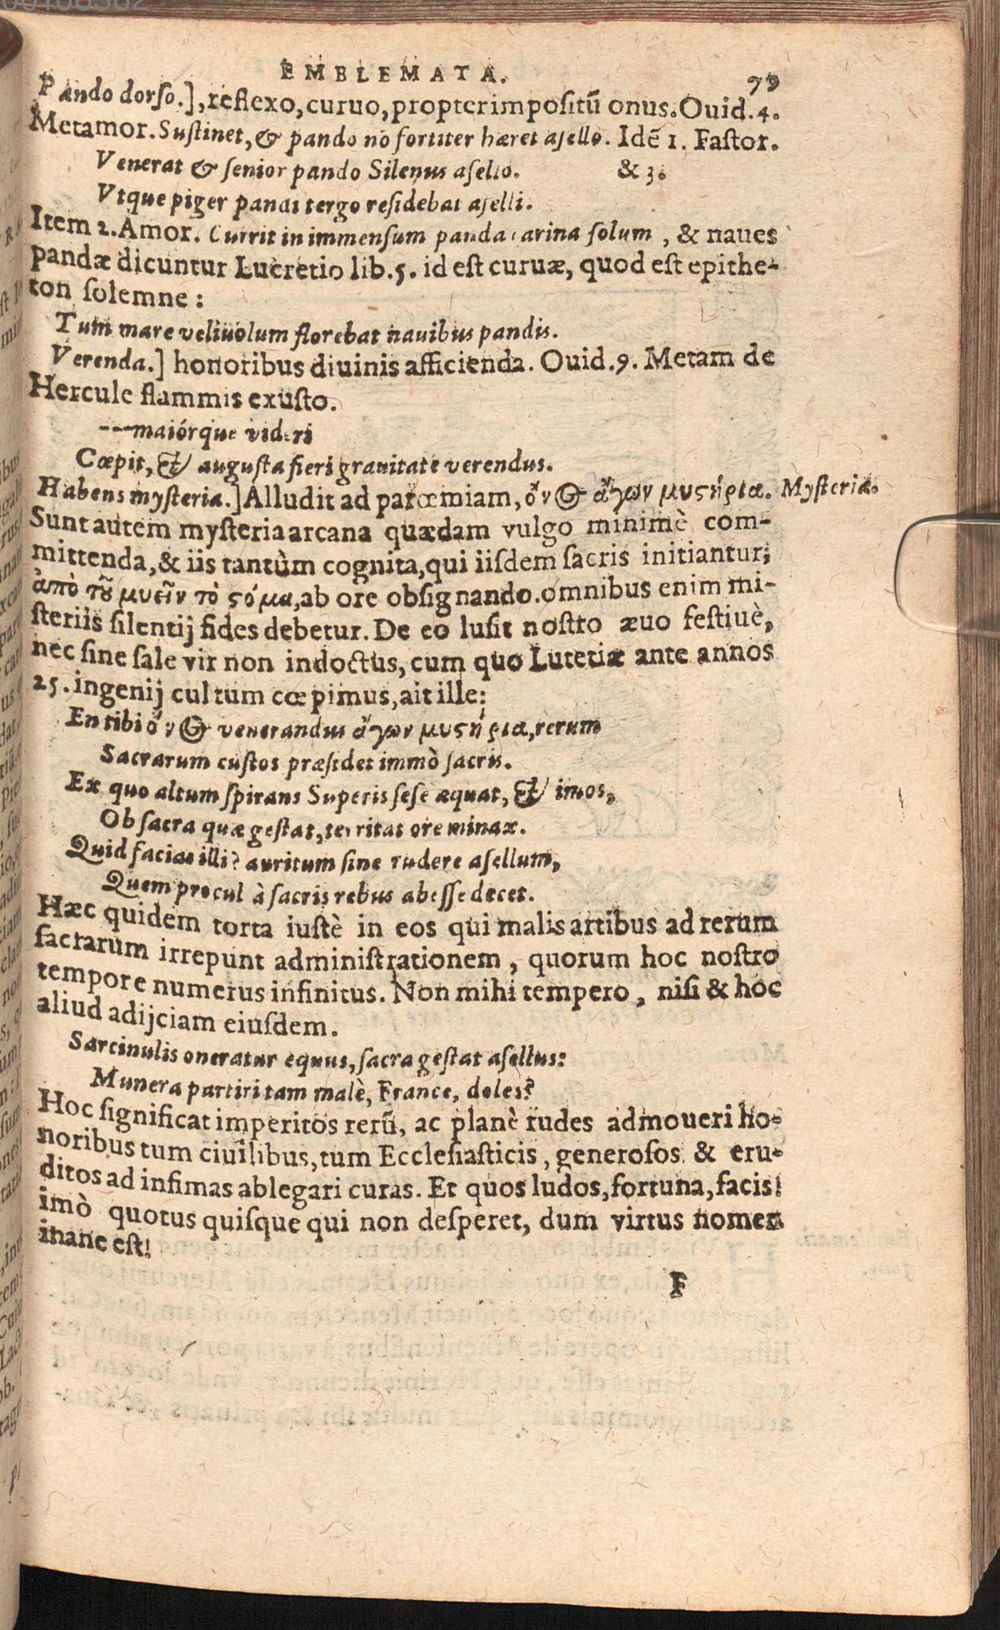 EMBLEMATA. 79
Pando dorso.], reflexo, curuo, propter impositū onus. Ouid. 4.
Metamor. Sustinet, & pando nō fortiter hæret asello. Idē 1. Fastor.
Venerat & senior pando Silenus asello. & 3.
Vtque piger pandi tergo residebat aselli.
Item 2. Amor. Currit in immensum panda carina solum, & naues
pandæ dicuntur Lucretio lib. 5. id est curuæ, quod est epithe-
ton solemne:
Tum mare veliuolum florebat nauibus pandis.
Verenda.] honoribus diuinis afficienda. Ouid. 9. Metam de
Hercule flammis exusto.
---maiórque videri
Cœpit, & augusta fieri grauitate verendus.
Habens mysteria.] Alludit ad parœmiam, ὄνος ἄγων μυστήρια. Mysteria.
Sunt autem mysteria arcana quædam vulgo minimè com-
mittenda, & iis tantùm cognita, qui iisdem sacris initiantur;
ἀπὸ τοῦ μυεῖν τὸ στόμα, ab ore obsignando. omnibus enim mi-
steriis silentij fides debetur. De eo lusit nostro æuo festiuè,
nec sine sale vir non indoctus, cum quo Lutetiæ ante annos
25. ingenij cultum cœpimus, ait ille:
En tibi ὄνος venerandus ἄγων μυστήρια, rerum
Sacrarum custos præsidet immò sacris.
Ex quo altum spirans Superis sese æquat, & imos,
Ob sacra quæ gestat, territat ore minax.
Quid facias illi? auritum sine rudere asellum,
Quem procul à sacris rebus abesse decet.
Hæc quidem torta iustè in eos qui malis artibus ad rerum
sacrarum irrepunt administrationem, quorum hoc nostro
tempore numerus infinitus. Non mihi tempero, nisi & hoc
aliud adijciam eiusdem.
Sarcinulis oneratur equus, sacra gestat asellus:
Munera partiri tam malè, France, doles?
Hoc significat imperitos rerū, ac planè rudes admoueri ho-
noribus tum ciuilibus, tum Ecclesiasticis, generosos & eru-
ditos ad infimas ablegari curas. Et quos ludos, fortuna, facis!
imò quotus quisque qui non desperet, dum virtus nomen
inane est!
F